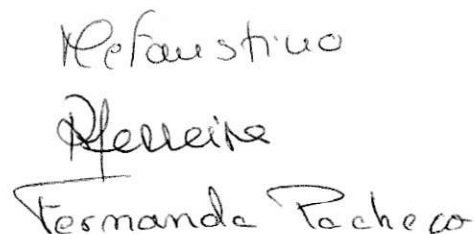 McFaustino
RFerreira
Fernanda Pacheco